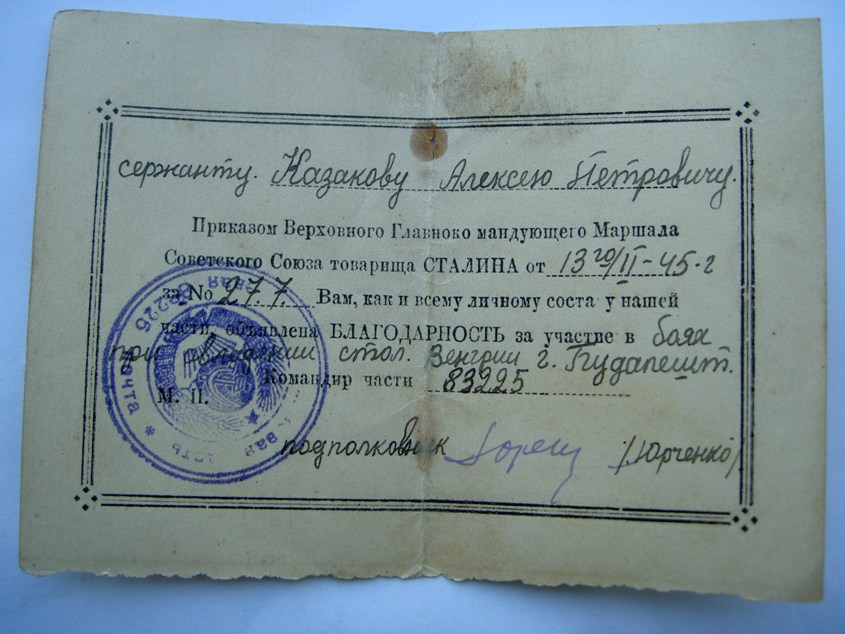 сержанту. Казакову Алексею Петровичу.
Приказом Верховного Главноко мандующего Маршала
Советского Союза товарища СТАЛИНА от 13го/II-45-г
за No 277. Вам, как и всему личному соста у нашей
части, объявлена БЛАГОДАРНОСТЬ за участие в боях
при овладении стол. Венгрии г. Будапешт.
Командир части 83225
М. П.
подполковник /Юрченко/
83225 * Почта